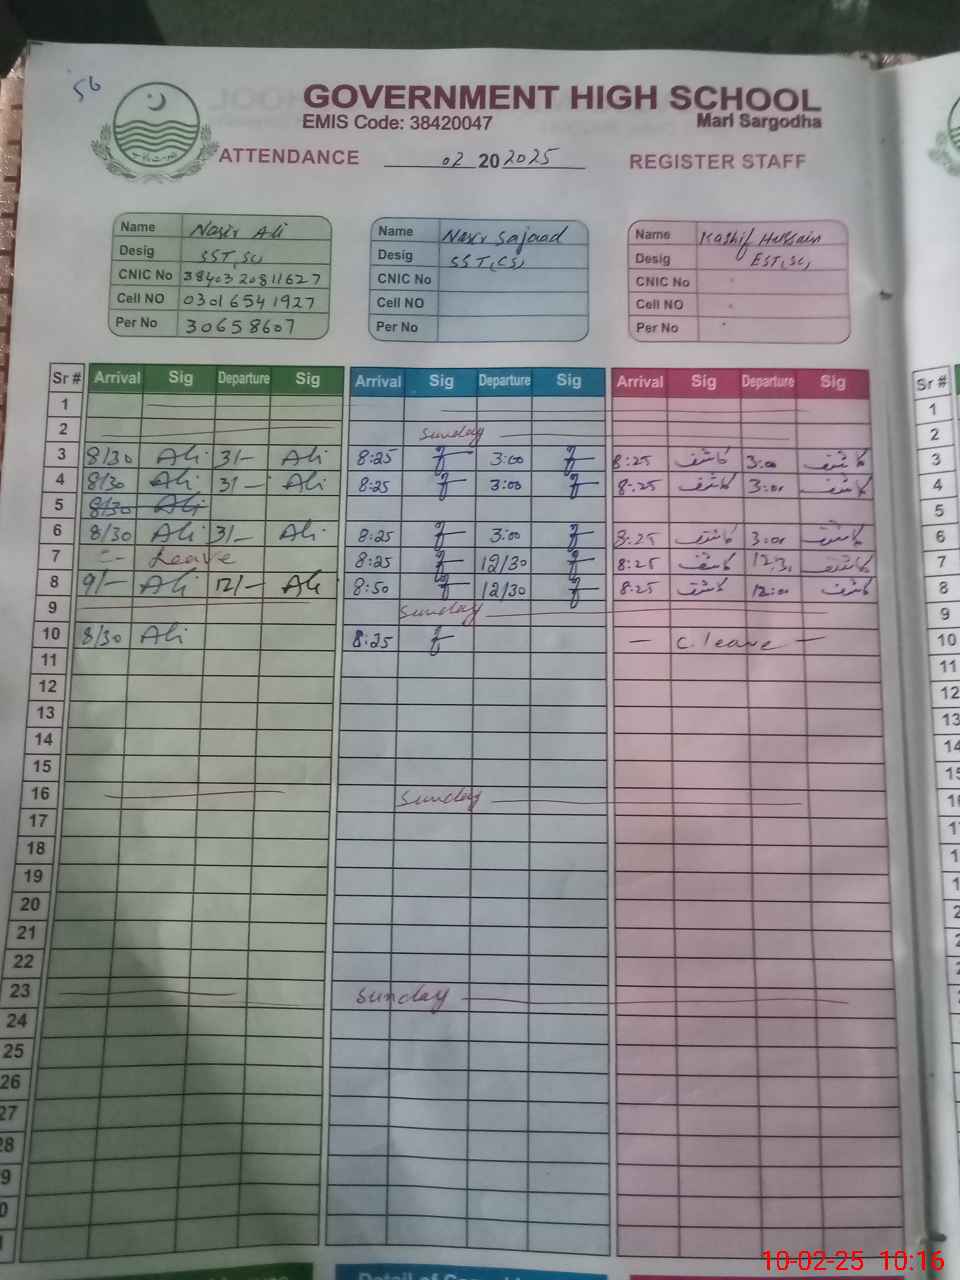 56
GOVERNMENT HIGH SCHOOL
EMIS Code: 38420047 Mari Sargodha
ATTENDANCE 02 20 2025 REGISTER STAFF
Name Nasir Ali Name Nasir Sajaad Name Kashif Hussain
Desig SST(SC) Desig SST(CS) Desig EST(SC)
CNIC No 3840320811627 CNIC No CNIC No
Cell NO 03016541927 Cell NO Cell NO
Per No 30658607 Per No Per No
Sr # Arrival Sig Departure Sig Arrival Sig Departure Sig Arrival Sig Departure Sig Sr #
1 1
2 Sunday 2
3 8/30 Ali 3/- Ali 8:25 3:00 8:25 کاشف 3:00 کاشف 3
4 8/30 Ali 3/- Ali 8:25 3:00 8:25 کاشف 3:00 کاشف 4
5 8/30 Ali 5
6 8/30 Ali 3/- Ali 8:25 3:00 8:25 کاشف 3:00 کاشف 6
7 Leave 8:25 12/30 8:25 کاشف کاشف 7
8 9/- Ali 12/- Ali 8:50 12/30 8:25 کاشف 12:00 کاشف 8
9 Sunday 9
10 8/30 Ali 8:25 – C. leave – 10
11 11
12 12
13 13
14 14
15 15
16 Sunday
17
18
19
20
21
22
23 Sunday
24
25
26
27
28
9
0
10-02-25 10:16